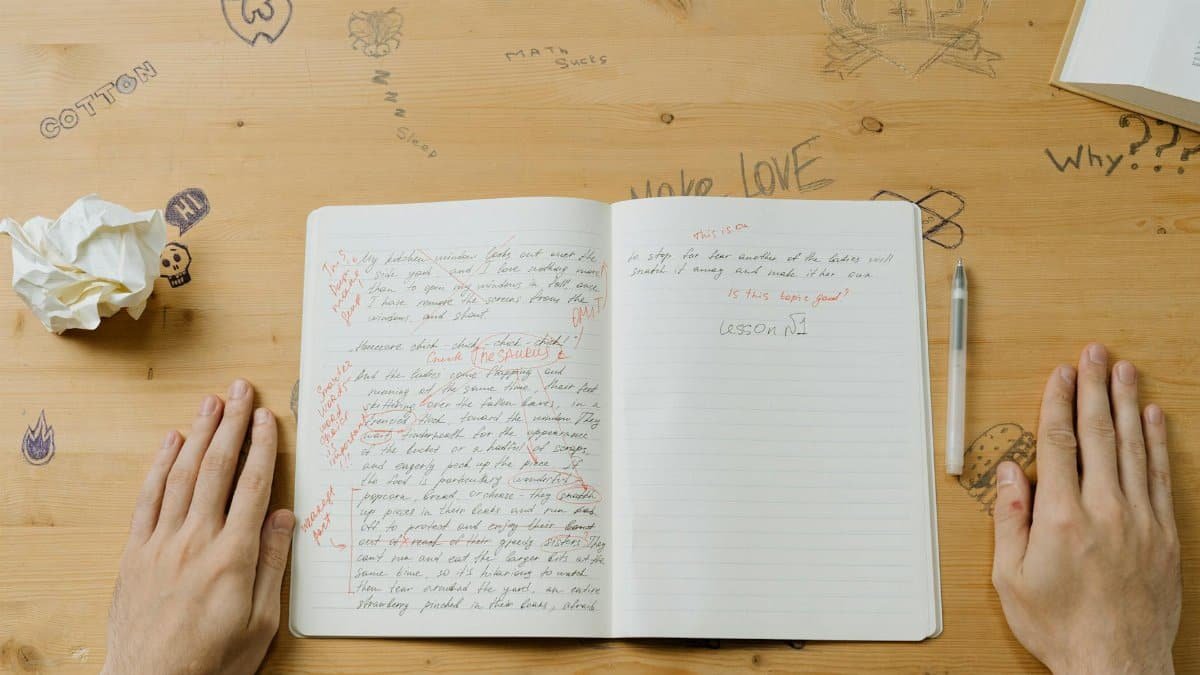 COTTON
MATH
SUCKS
Sleep
Why???
HI
MAKE LOVE
My kitchen window looks out over the
side yard and I love nothing more
than to open my windows in fall, once
I have remove the screens from the
windows, and shout
chick - chick - chick - chick!
OMIT
THESAURUS
And the ladies come flapping and
running at the same time, their feet
skittering over the fallen leaves, in a
frenzied toward the window. They
wait underneath for the appearance
of the bucket or a handful of scraps,
and eagerly peck up the piece. If
the food is particularly wonderful -
popcorn, bread, or cheese - they snatch
up pieces in their beaks and run
off to protest and enjoy their
out of reach of their greedy sisters. They
can't run and eat the larger bits at the
same time, so it's hilarious to watch
them tear around the yard, an entire
strawberry pinched in their beaks, afraid
words
word
choice
is
important
!!!
weakest
part
this is
to stop for fear another of the ladies will
snatch it away and make it her own
Is this topic good?
Lesson №1